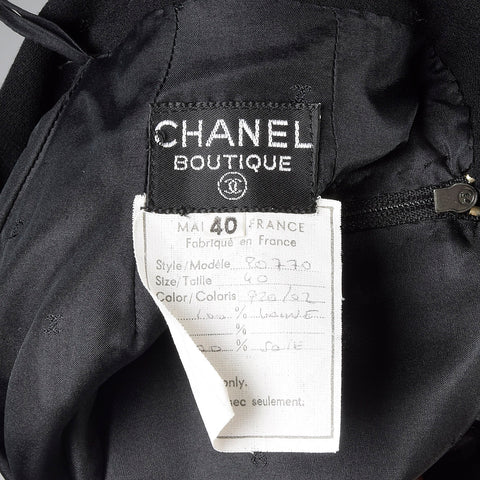 CHANEL
BOUTIQUE
MAI 40 FRANCE
Fabriqué en France
Style/Modèle P0770
Size/Taille 40
Color/Coloris 920/02
100 % LAINE
%
% SOIE
only.
sec seulement.